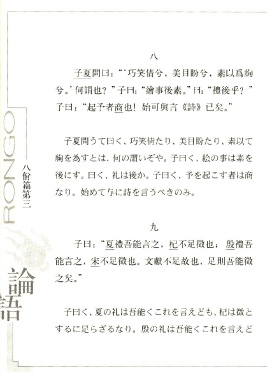 八
子夏問曰：“‘巧笑倩兮，美目盼兮，素以爲絢
兮。’何謂也？”子曰：“繪事後素。”曰：“禮後乎？”
子曰：“起予者商也！始可與言《詩》已矣。”
子夏問うて曰く、巧笑倩たり、美目盼たり、素以て
絢を為すとは、何の謂いぞや。子曰く、絵の事は素を
後にす。曰く、礼は後か。子曰く、予を起こす者は商
なり。始めて与に詩を言うべきのみ。
九
子曰：“夏禮吾能言之，杞不足徵也；殷禮吾
能言之，宋不足徵也。文獻不足故也，足則吾能徵
之矣。”
子曰く、夏の礼は吾能くこれを言えども、杞は徴と
するに足らざるなり。殷の礼は吾能くこれを言えど
RONGO
八佾篇第三
論語